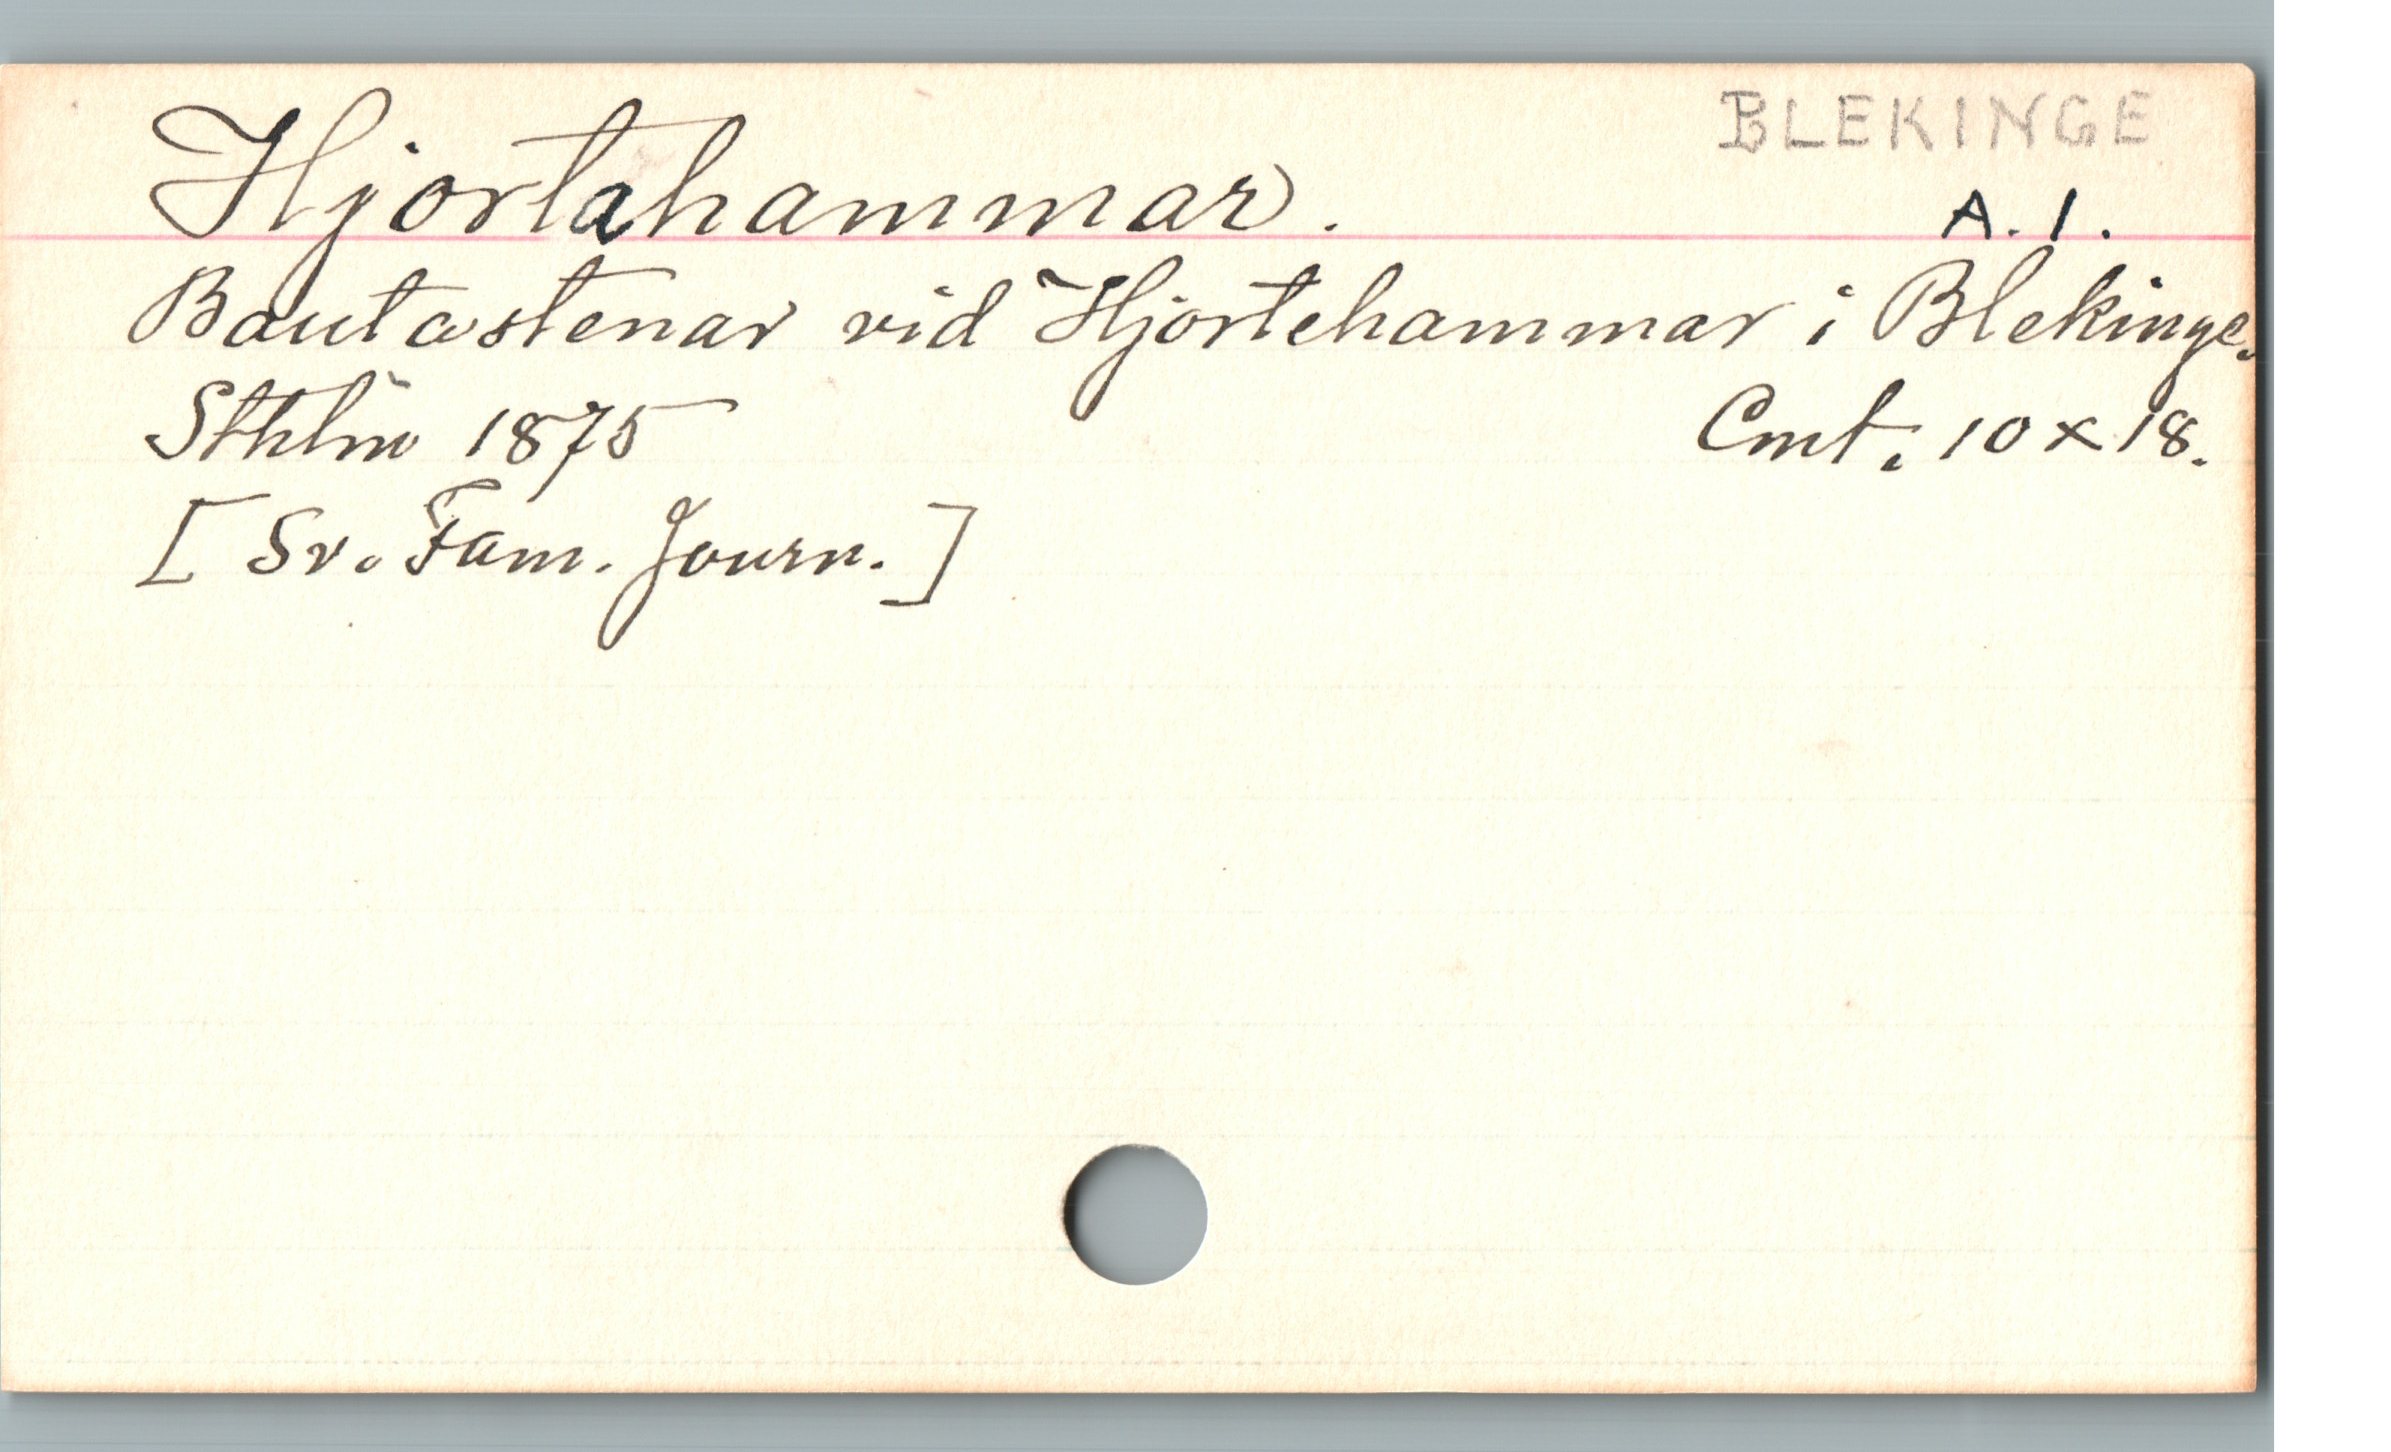 BLEKINGE
Hjortahammar. A. 1.
Bautastenar vid Hjortehammar i Blekinge.
Sthlm 1875 Cmt. 10 x 18.
[ Sv. Fam. Journ. ]